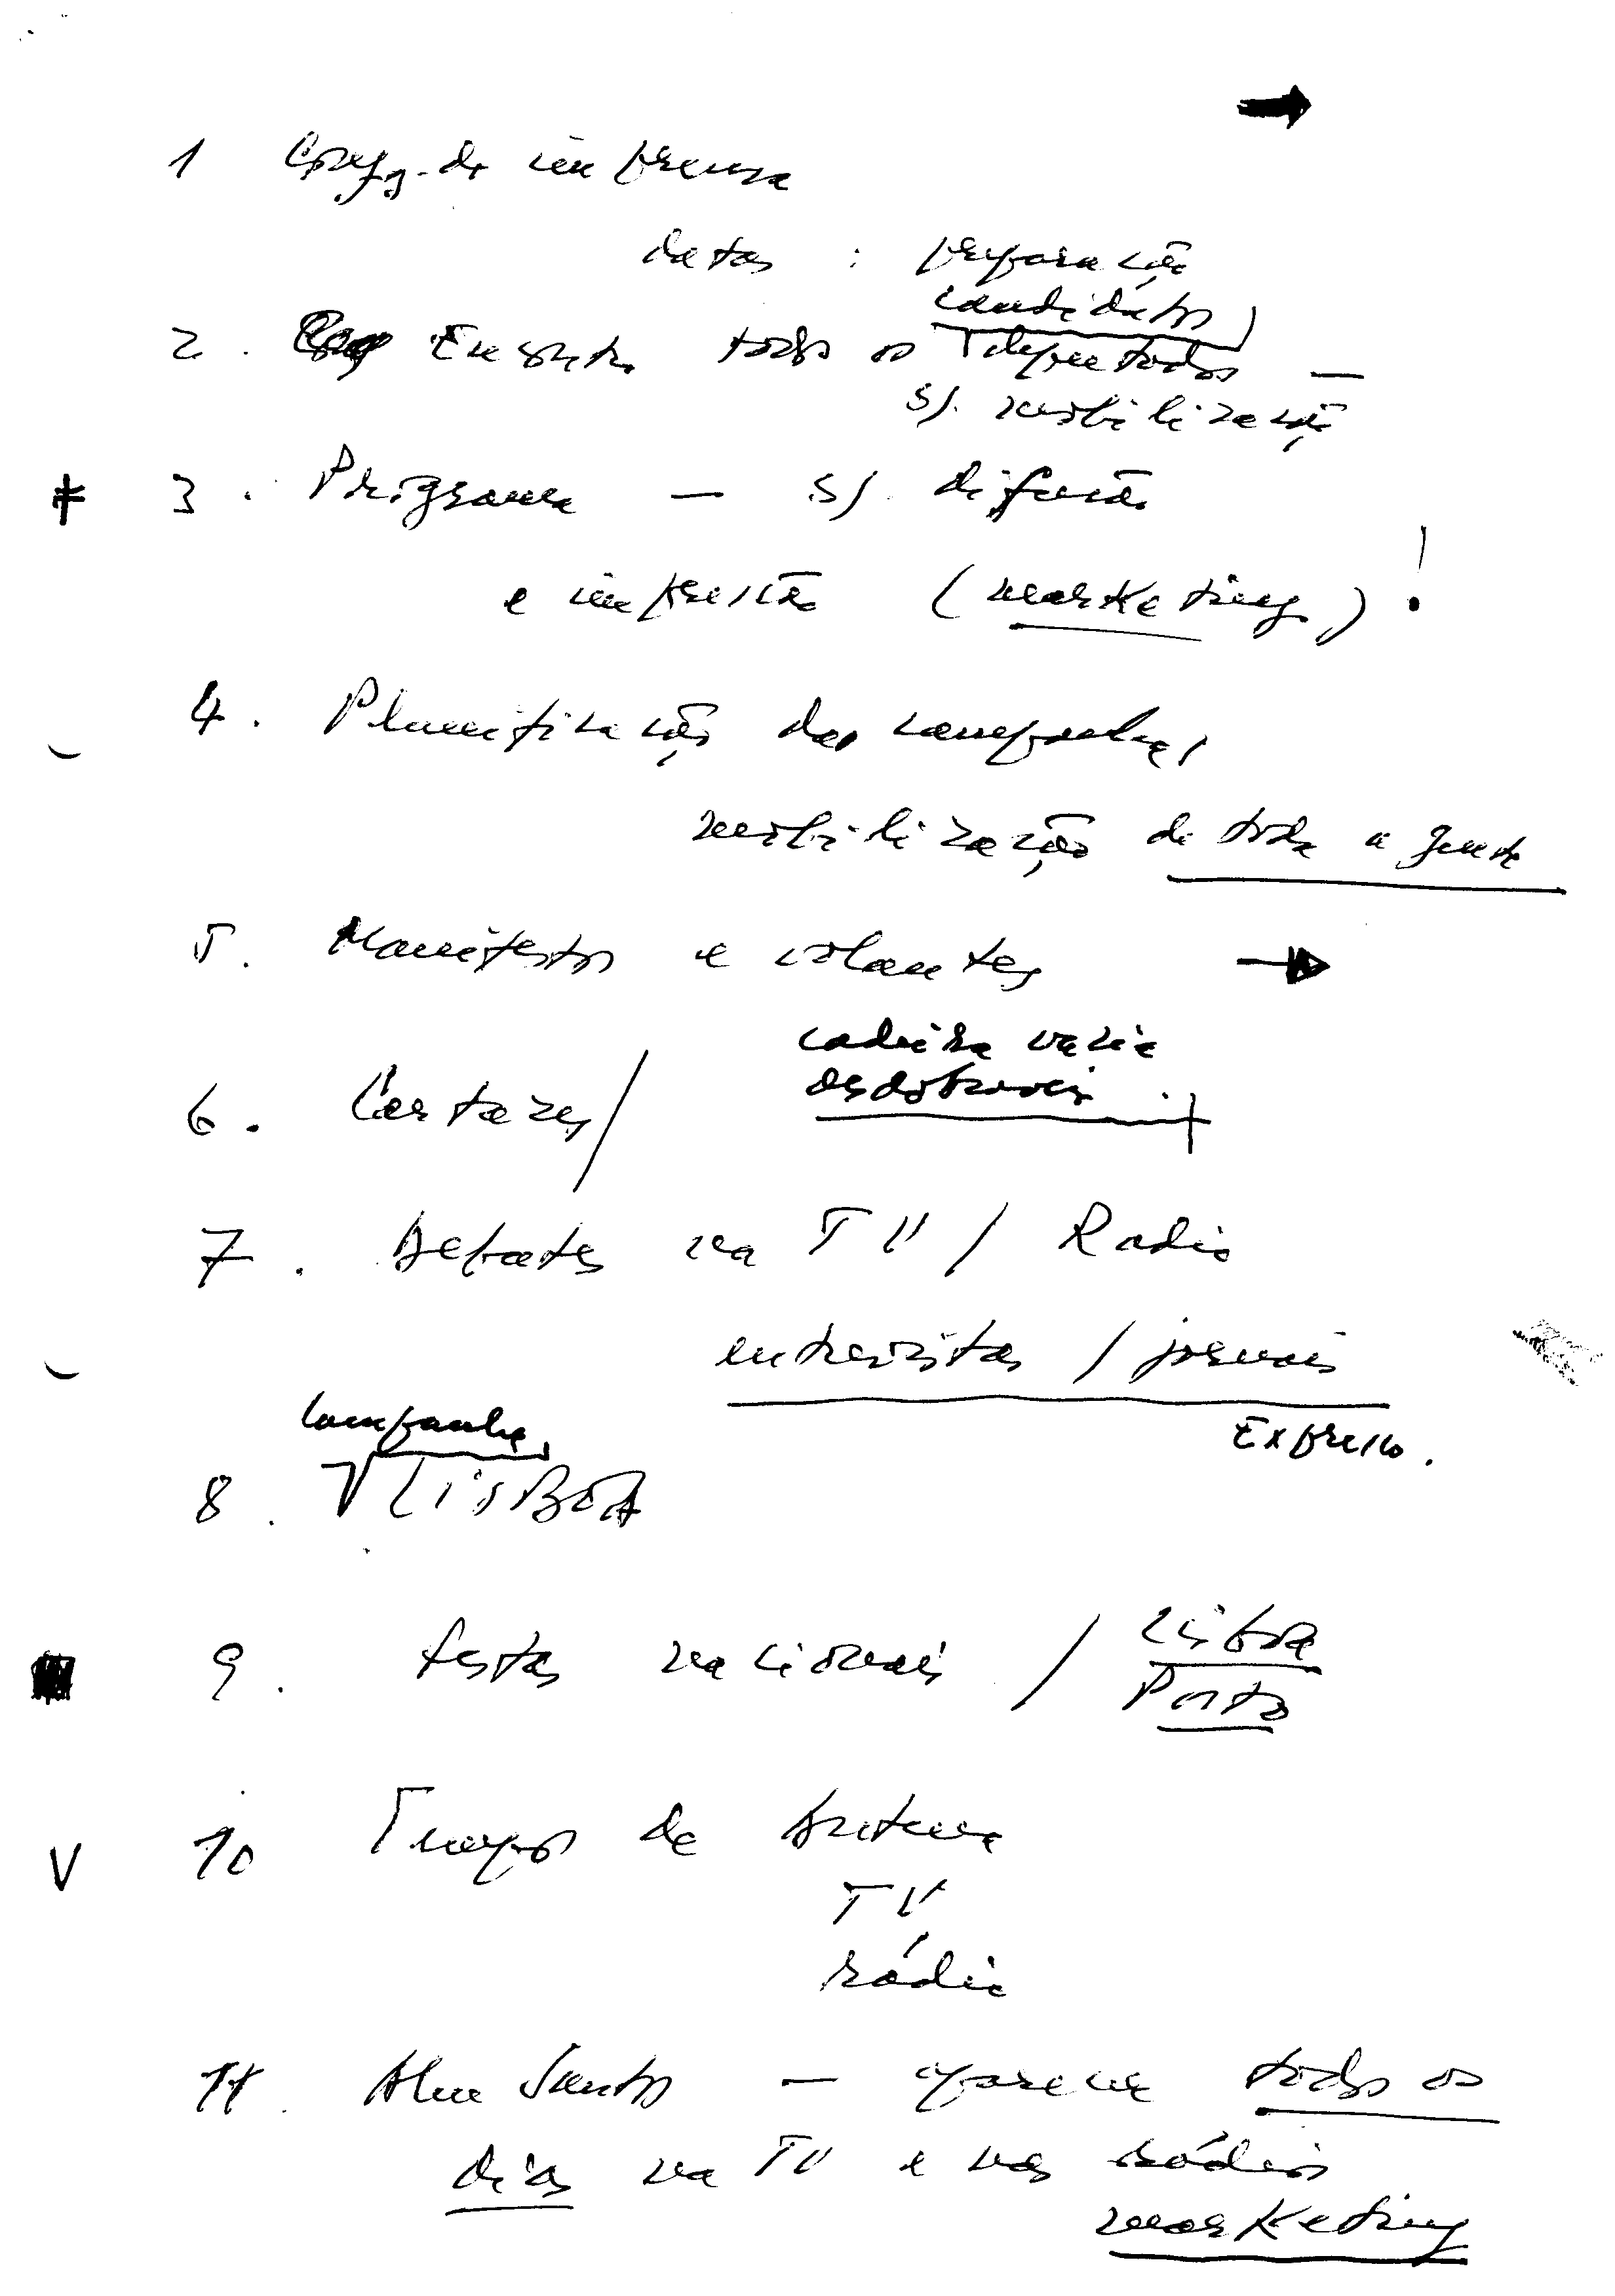 1 Conf. de imprensa
datas : preparação
candidatos
2. Encontro todos os Deputados —
s/. mobilização
3. Programa — s/. difusão
e impressão (marketing)!
4. Planificação da campanha,
mobilização de toda a gente
5. Manifestos e volantes
cadeira vazia
6. Cartazes/ desdobráveis
7. Debates na TV / Radio
entrevistas / jornais
Expresso.
campanha
8. LISBOA
9. festas nacionais / Lisboa
Porto
10 Tempo de Antena
TV
rádio
11. Alm Santos — aparece todos os
dias na TV e nas rádios
marketing